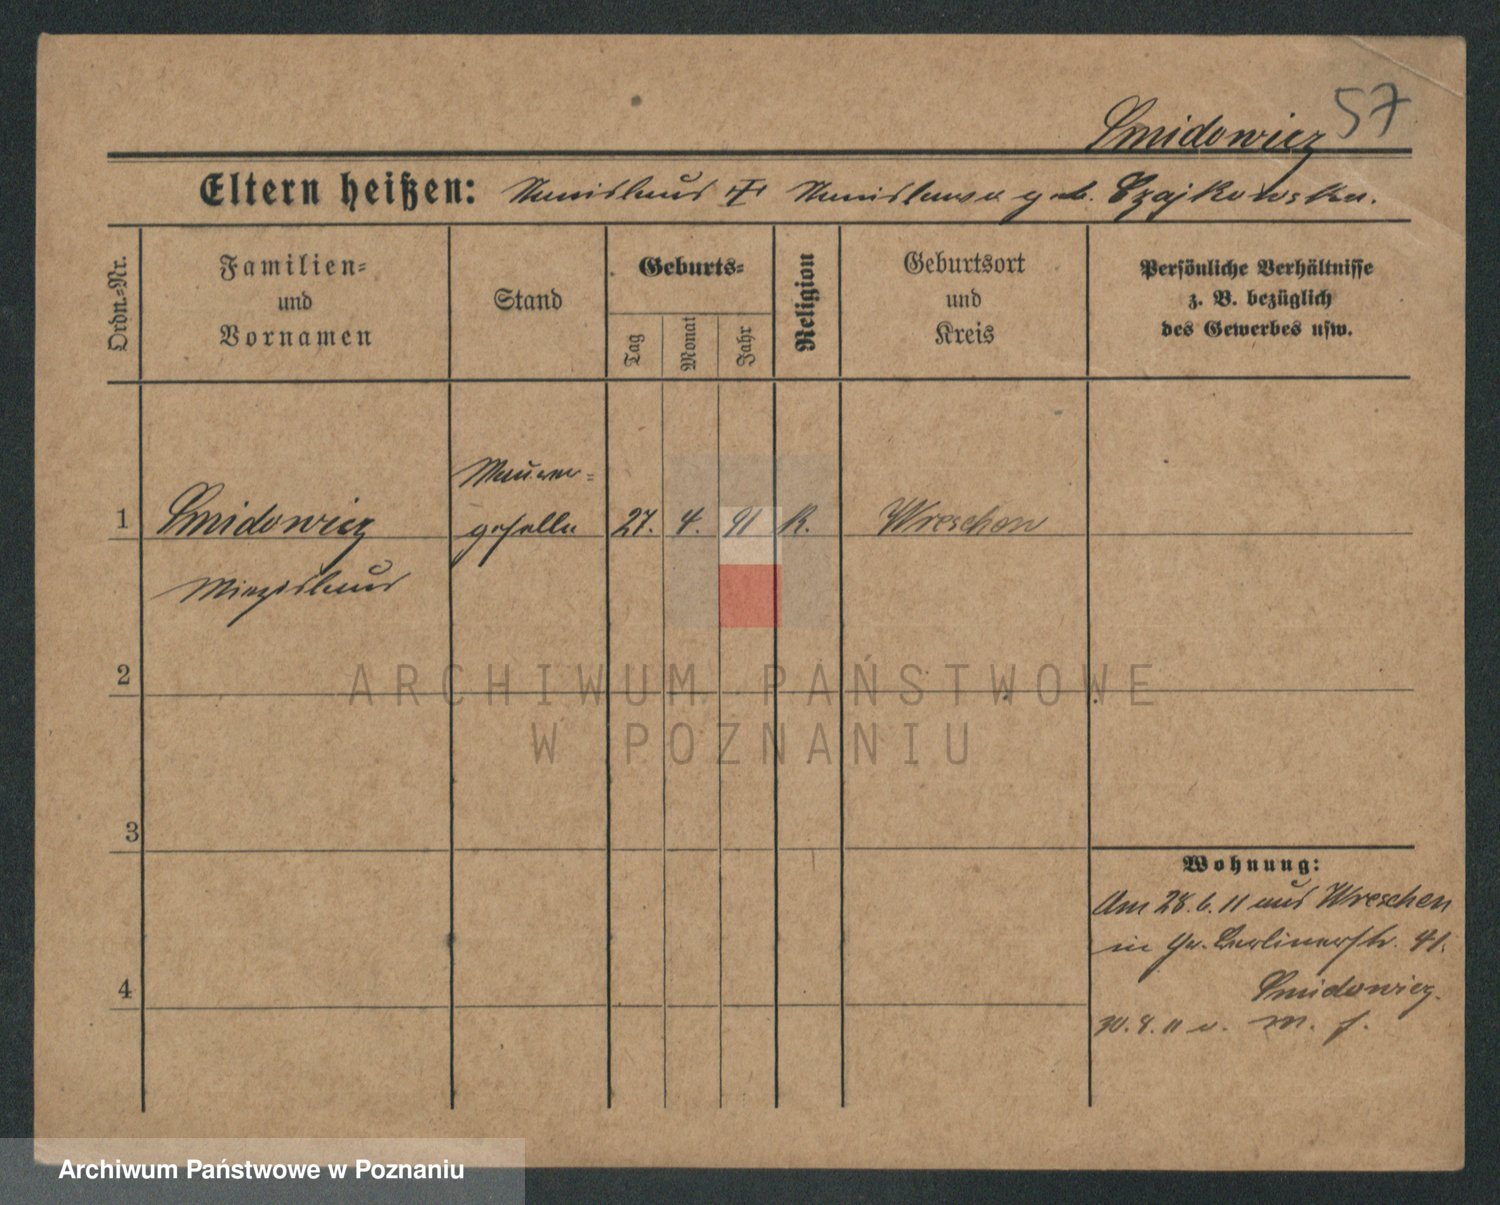 57
Smidowicz
Eltern heißen: Stanislaus Stanislawa geb. Czajkowska.
Ordn.-Nr.
Familien-
und
Vornamen
Stand
Geburts-
Tag
Monat
Jahr
Religion
Geburtsort
und
Kreis
Persönliche Verhältnisse
z. B. bezüglich
des Gewerbes usw.
Maurer-
1 Smidowicz geselle 27. 4. 91 K. Wreschen
Miezislaus
2
3
4
Wohnung:
Am 28.6.11 aus Wreschen
in Gr. Berlinerstr. 41.
Smidowicz.
30.8.11 v.
ARCHIWUM PAŃSTWOWE
W POZNANIU
Archiwum Państwowe w Poznaniu